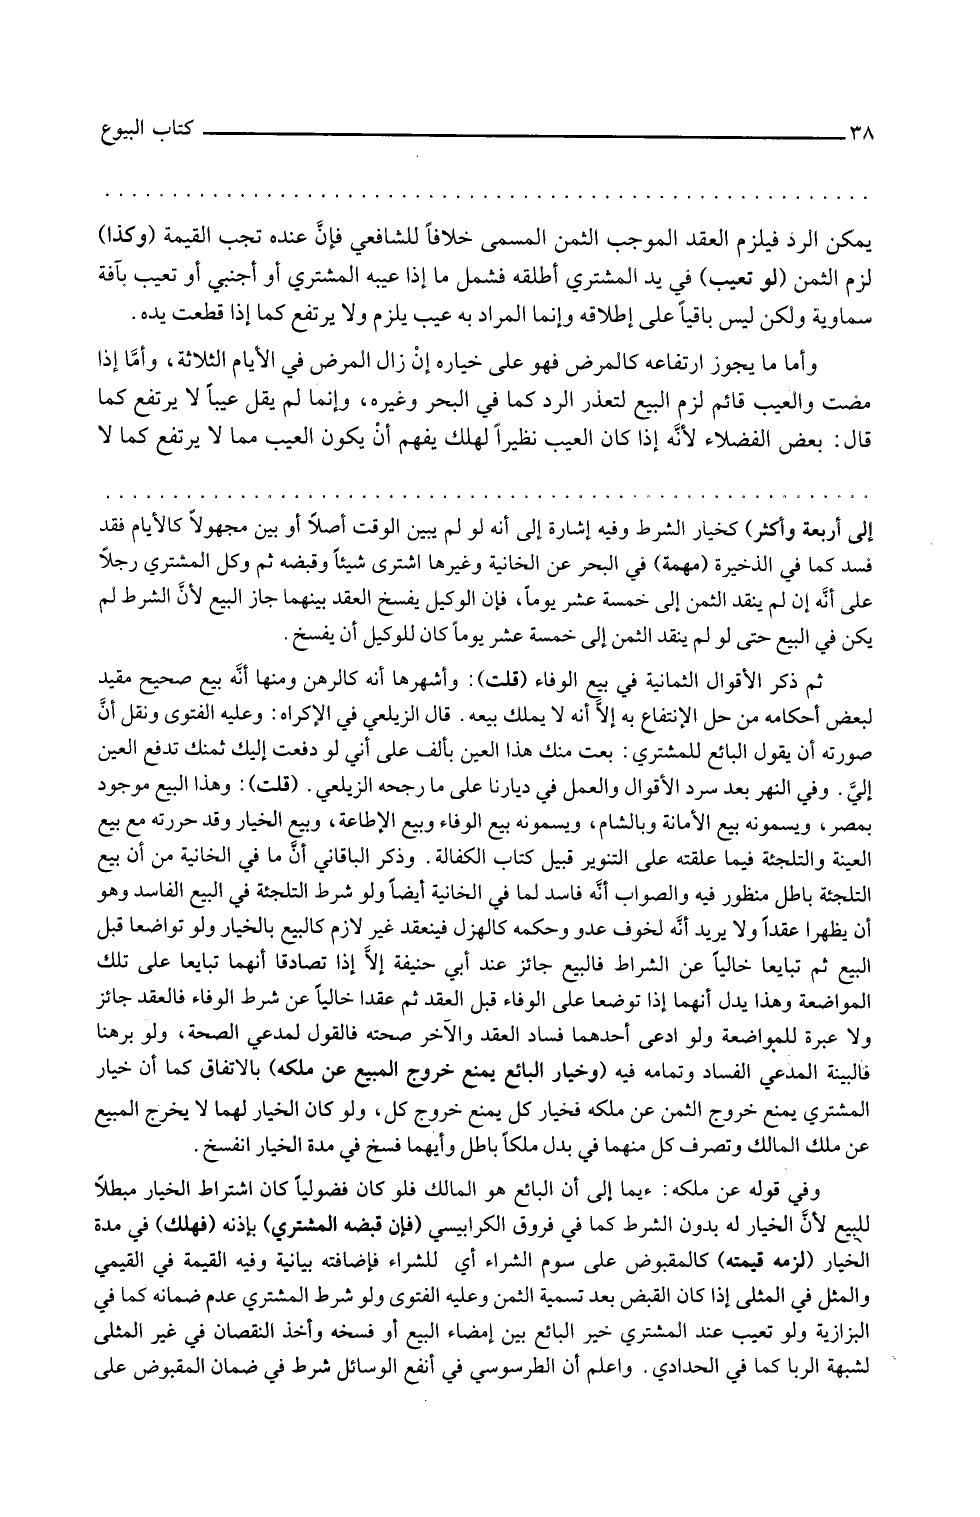 ٣٨ كتاب البيوع
يمكن الرد فيلزم العقد الموجب الثمن المسمى خلافاً للشافعي فإنَّ عنده تجب القيمة (وكذا)
لزم الثمن (لو تعيب) في يد المشتري أطلقه فشمل ما إذا عيبه المشتري أو أجنبي أو تعيب بآفة
سماوية ولكن ليس باقياً على إطلاقه وإنما المراد به عيب يلزم ولا يرتفع كما إذا قطعت يده.
وأما ما يجوز ارتفاعه كالمرض فهو على خياره إنْ زال المرض في الأيام الثلاثة، وأمَّا إذا
مضت والعيب قائم لزم البيع لتعذر الرد كما في البحر وغيره، وإنما لم يقل عيباً لا يرتفع كما
قال: بعض الفضلاء لأنَّه إذا كان العيب نظيراً لهلك يفهم أنْ يكون العيب مما لا يرتفع كما لا
إلى أربعة وأكثر) كخيار الشرط وفيه إشارة إلى أنه لو لم يبين الوقت أصلاً أو بين مجهولاً كالأيام فقد
فسد كما في الذخيرة (مهمة) في البحر عن الخانية وغيرها اشترى شيئاً وقبضه ثم وكل المشتري رجلاً
على أنَّه إن لم ينقد الثمن إلى خمسة عشر يوماً، فإن الوكيل يفسخ العقد بينهما جاز البيع لأنَّ الشرط لم
يكن في البيع حتى لو لم ينقد الثمن إلى خمسة عشر يوماً كان للوكيل أن يفسخ.
ثم ذكر الأقوال الثمانية في بيع الوفاء (قلت): وأشهرها أنه كالرهن ومنها أنَّه بيع صحيح مقيد
لبعض أحكامه من حل الإنتفاع به إلاَّ أنه لا يملك بيعه. قال الزيلعي في الإكراه: وعليه الفتوى ونقل أنَّ
صورته أن يقول البائع للمشتري: بعت منك هذا العين بألف على أني لو دفعت إليك ثمنك تدفع العين
إليَّ. وفي النهر بعد سرد الأقوال والعمل في ديارنا على ما رجحه الزيلعي. (قلت): وهذا البيع موجود
بمصر، ويسمونه بيع الأمانة وبالشام، ويسمونه بيع الوفاء وبيع الإطاعة، وبيع الخيار وقد حررته مع بيع
العينة والتلجئة فيما علقته على التنوير قبيل كتاب الكفالة. وذكر الباقاني أنَّ ما في الخانية من أن بيع
التلجئة باطل منظور فيه والصواب أنَّه فاسد لما في الخانية أيضاً ولو شرط التلجئة في البيع الفاسد وهو
أن يظهرا عقداً ولا يريد أنَّه لخوف عدو وحكمه كالهزل فينعقد غير لازم كالبيع بالخيار ولو تواضعا قبل
البيع ثم تبايعا خالياً عن الشراط فالبيع جائز عند أبي حنيفة إلاَّ إذا تصادقا أنهما تبايعا على تلك
المواضعة وهذا يدل أنهما إذا توضعا على الوفاء قبل العقد ثم عقدا خالياً عن شرط الوفاء فالعقد جائز
ولا عبرة للمواضعة ولو ادعى أحدهما فساد العقد والآخر صحته فالقول لمدعي الصحة، ولو برهنا
فالبينة المدعي الفساد وتمامه فيه (وخيار البائع يمنع خروج المبيع عن ملكه) بالاتفاق كما أن خيار
المشتري يمنع خروج الثمن عن ملكه فخيار كل يمنع خروج كل، ولو كان الخيار لهما لا يخرج المبيع
عن ملك المالك وتصرف كل منهما في بدل ملكاً باطل وأيهما فسخ في مدة الخيار انفسخ.
وفي قوله عن ملكه: ءيما إلى أن البائع هو المالك فلو كان فضولياً كان اشتراط الخيار مبطلاً
للبيع لأنَّ الخيار له بدون الشرط كما في فروق الكرابيسي (فإن قبضه المشتري) بإذنه (فهلك) في مدة
الخيار (لزمه قيمته) كالمقبوض على سوم الشراء أي للشراء فإضافته بيانية وفيه القيمة في القيمي
والمثل في المثلى إذا كان القبض بعد تسمية الثمن وعليه الفتوى ولو شرط المشتري عدم ضمانه كما في
البزازية ولو تعيب عند المشتري خير البائع بين إمضاء البيع أو فسخه وأخذ النقصان في غير المثلى
لشبهة الربا كما في الحدادي. واعلم أن الطرسوسي في أنفع الوسائل شرط في ضمان المقبوض على